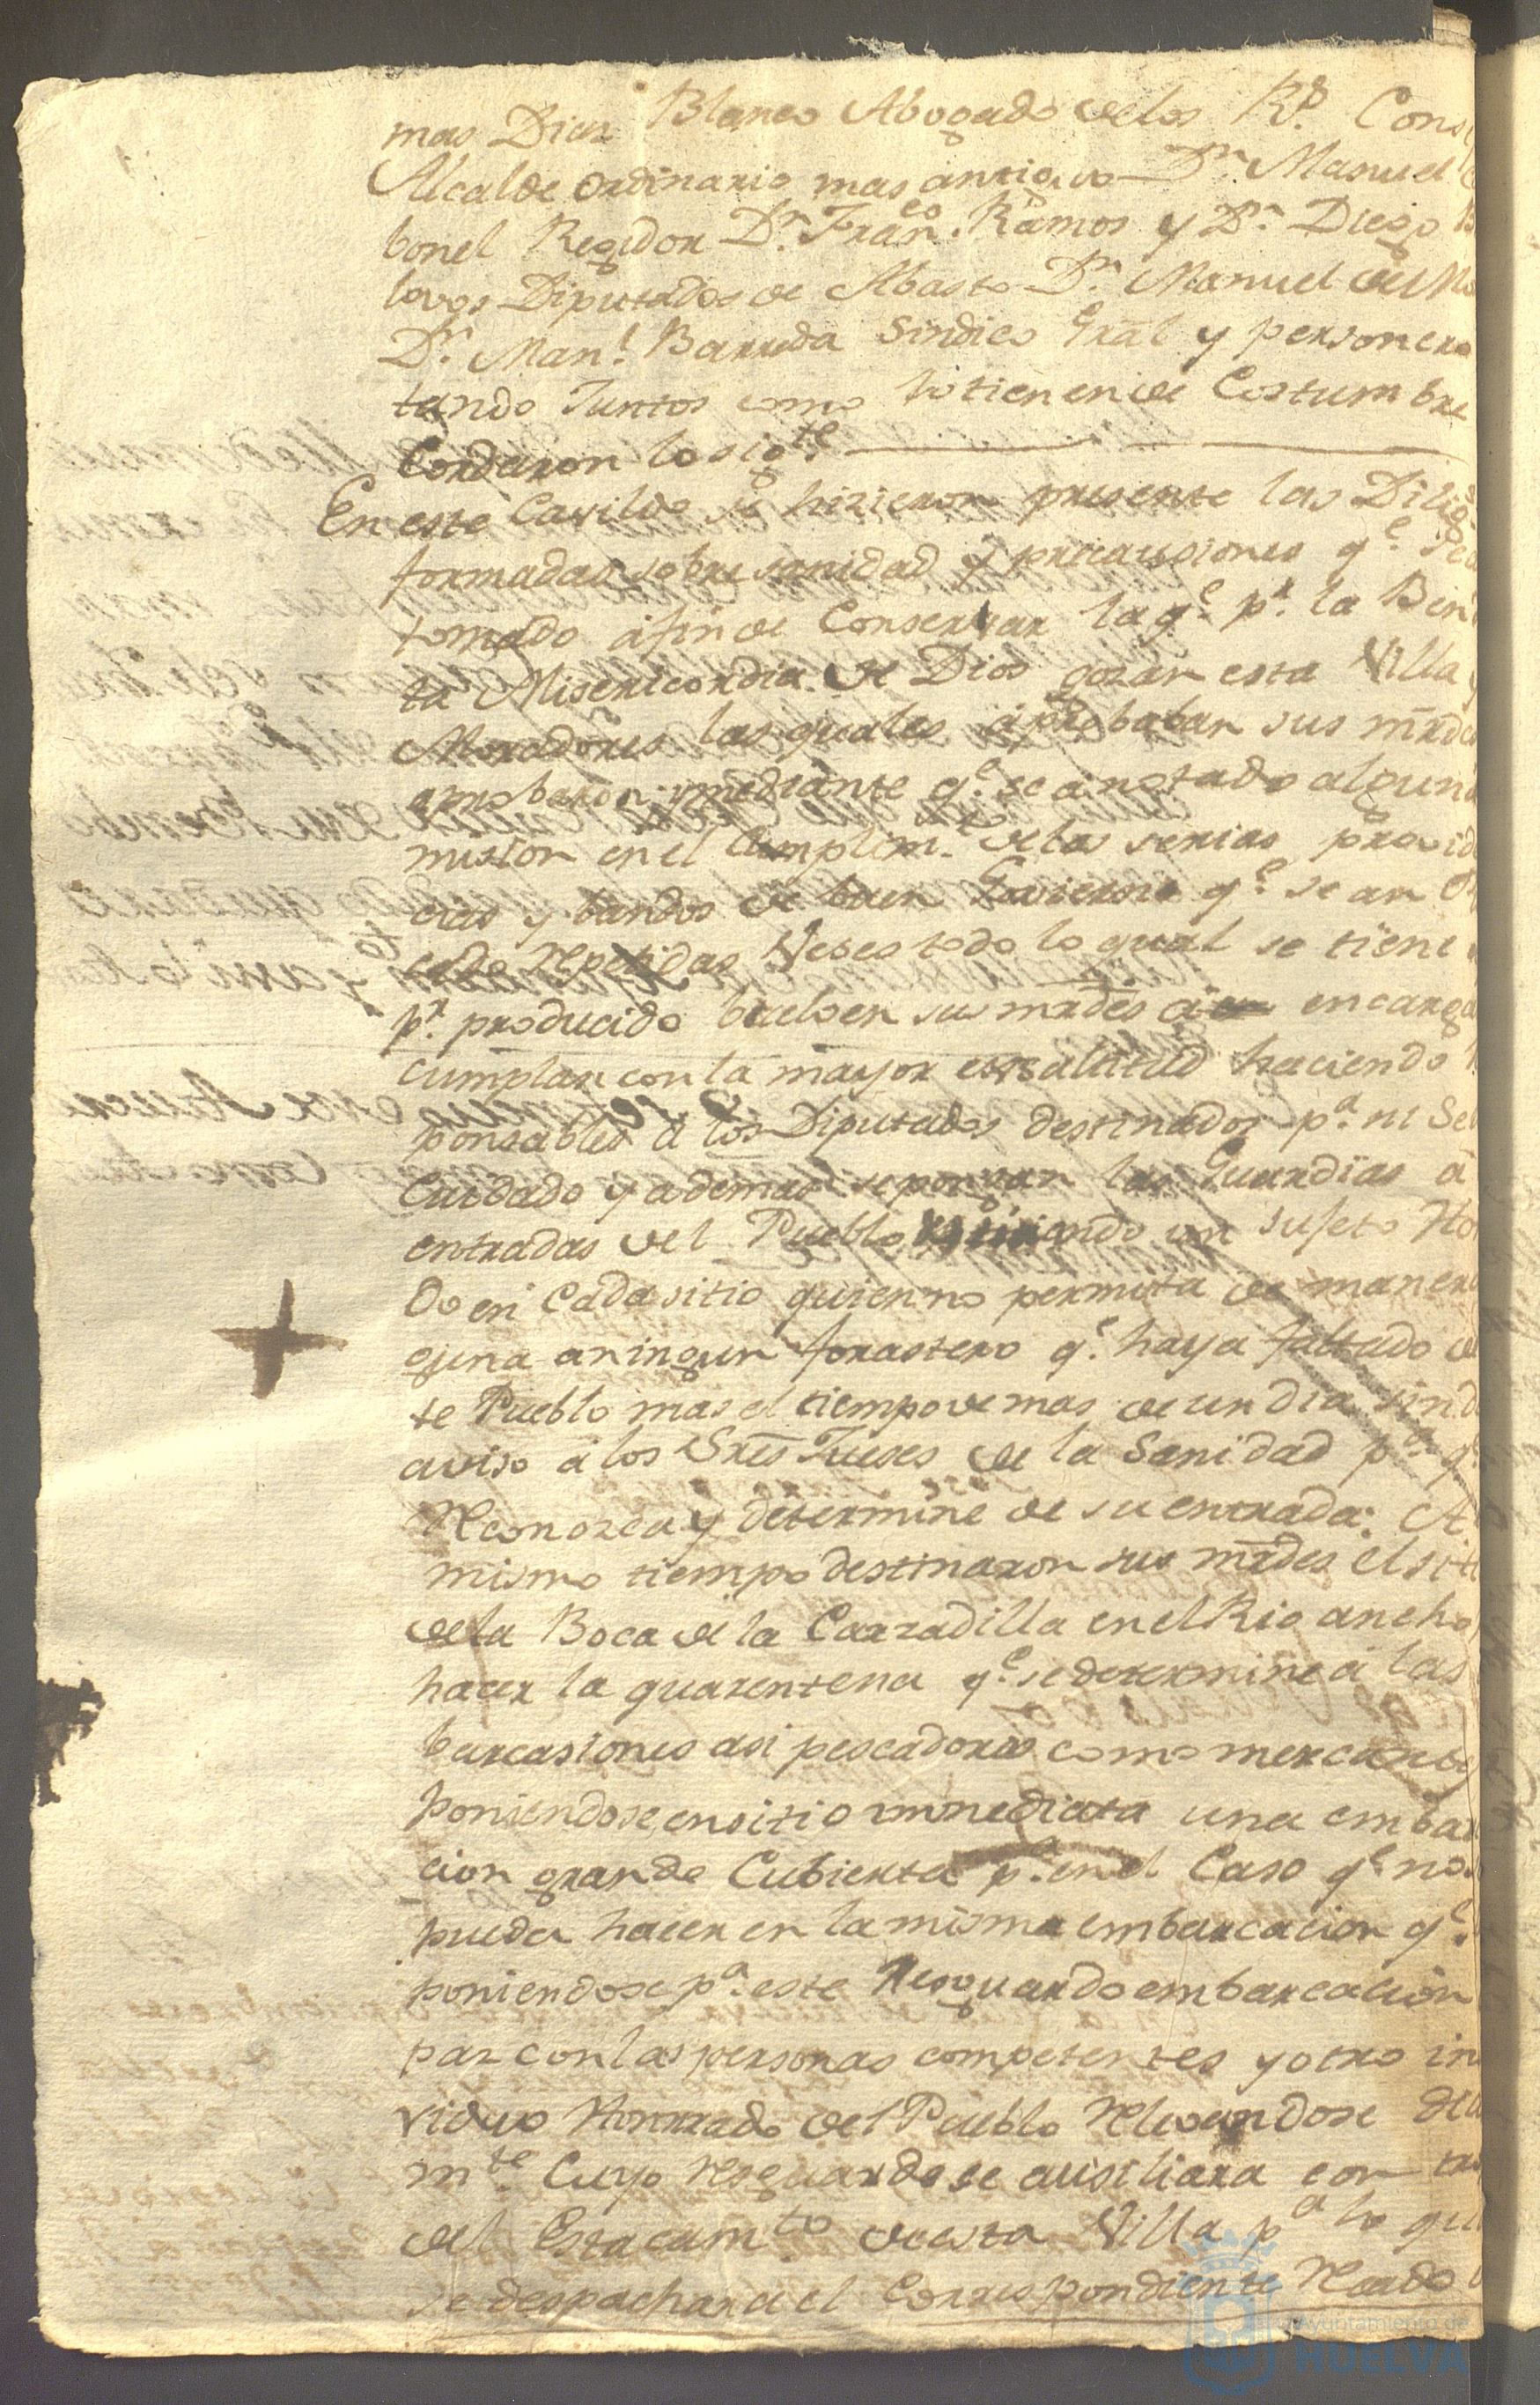 mas Diaz Blanco Abogado delos Rs. Cons
Alcalde ordinario mas antiguo Dn. Manuel
bonel Regidor Dn. Franco. Ramos y Dn. Diego
Diputados de Abasto Dn. Manuel de Mo
Dn. Manl. Barreda Sindico Gral y personero
tando Juntos como lo tienen de Costumbre
Cordaron lo sigte.
En este Cavildo se hizieron presente las Dilig
formadas sobre sanidad y precausiones qe. se
tomado afin de Conservar la qe. pr. la Ben
ta Misericordia de Dios gozan esta Villa y
Moradores las quales aprobaban sus mrdes
aprobaron y mediante qe. se a notado alguna
mision en el Cumplimto. delas serias provid
cias y bandos de buen Govierno qe. se an
cado repetidas Veses todo lo qual se tiene
pr. producido buelven sus mrdes a encarga
cumplan con la mayor essactitud haciendo
ponsables a los Diputados destinados pa. ni
Cuidado y ademas se pongan las Guardias a
entradas del Pueblo un sujeto Ho
do en Cada sitio quien no permita de maner
guna a ningun forastero qe. haya faltado de
te Pueblo mas el tiempo de mas de un dia sin d
aviso a los Sres Jueses de la Sanidad pa. qe
Reconozca y determine de su entrada: A
mismo tiempo destinaron sus mrdes el siti
dela Boca de la Carzadilla en el Rio ancho
hacer la quarentena qe. se determine a las
barcasiones asi pescadoras como mercante
poniendose en sitio immediata una embar
cion grande Cubierta pa. en el Caso qe. no
pueda hacer en la misma embarcacion qe.
poniendose pa. este Resguardo embarcacion
par con las personas competentes y otro in
viduo Honrrado del Pueblo Relevandose
mte. Cuyo resguardo se ausiliara con
del Estacamto. de esta Villa pa lo qu
se despachara el Correspondiente Recado
Ayuntamiento de
HUELVA